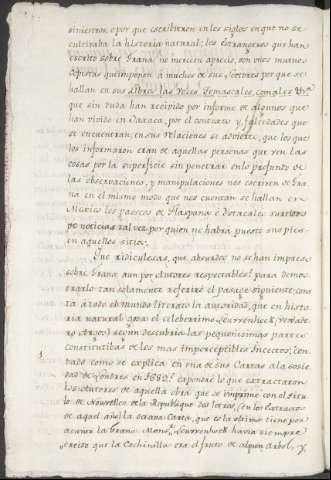 siniestros, o por que escribieron en los siglos en que no se
cultivaba la historia natural; los Estrangeros que han
escrito sobre Grana, no merecen aprecio, son unos meros
copistas que imponen à muchos de sus Lectores por que se
hallan en sus Libros las voces Temascales, comales &ca
que sin duda han recibido por informe de algunos que
han vivido en Oaxaca, por el contexto y falsedades que
se encuentran en sus relaciones se advierte, que los que
los informaron eran de aquellas personas que ven las
cosas por la superficie sin penetrar en lo profundo de
las observaciones, y manipulaciones nos escriven de Gra
na en el mismo modo que nos cuentan se hallan en
Mexico los paseos de
noticias tal vez por quien no habrà puesto sus pies
en aquellos sitios.
Que ridiculeces, que absurdos no se han impreso
sobre Grana aun por Autores respectables! para demos
trarlo tan solamente referiré el pasage siguiente; cons
ta à todo el mundo literato la autoridad, que en histo
ria natural goza el celeberrimo Leuvvenhoek (verdade
ro Argos) segun descubriò las pequeñisimas partes
constitutibas de los mas imperceptibles Insectos;
dado como se explica en una de sus Cartas a la socie
dad de Londres en 1692. expondré lo que extractaron
los Autores de aquella obra que se imprime con el titu
lo de Nouvelles de la Republique des letres, (en los Extractos
de aquel año) la octava Carta, que es la ultima tiene por
la Grana. Monsr. Leuvvenhoek havia siempre
creido que la Cochinilla era el fruto de algun Arbol, y